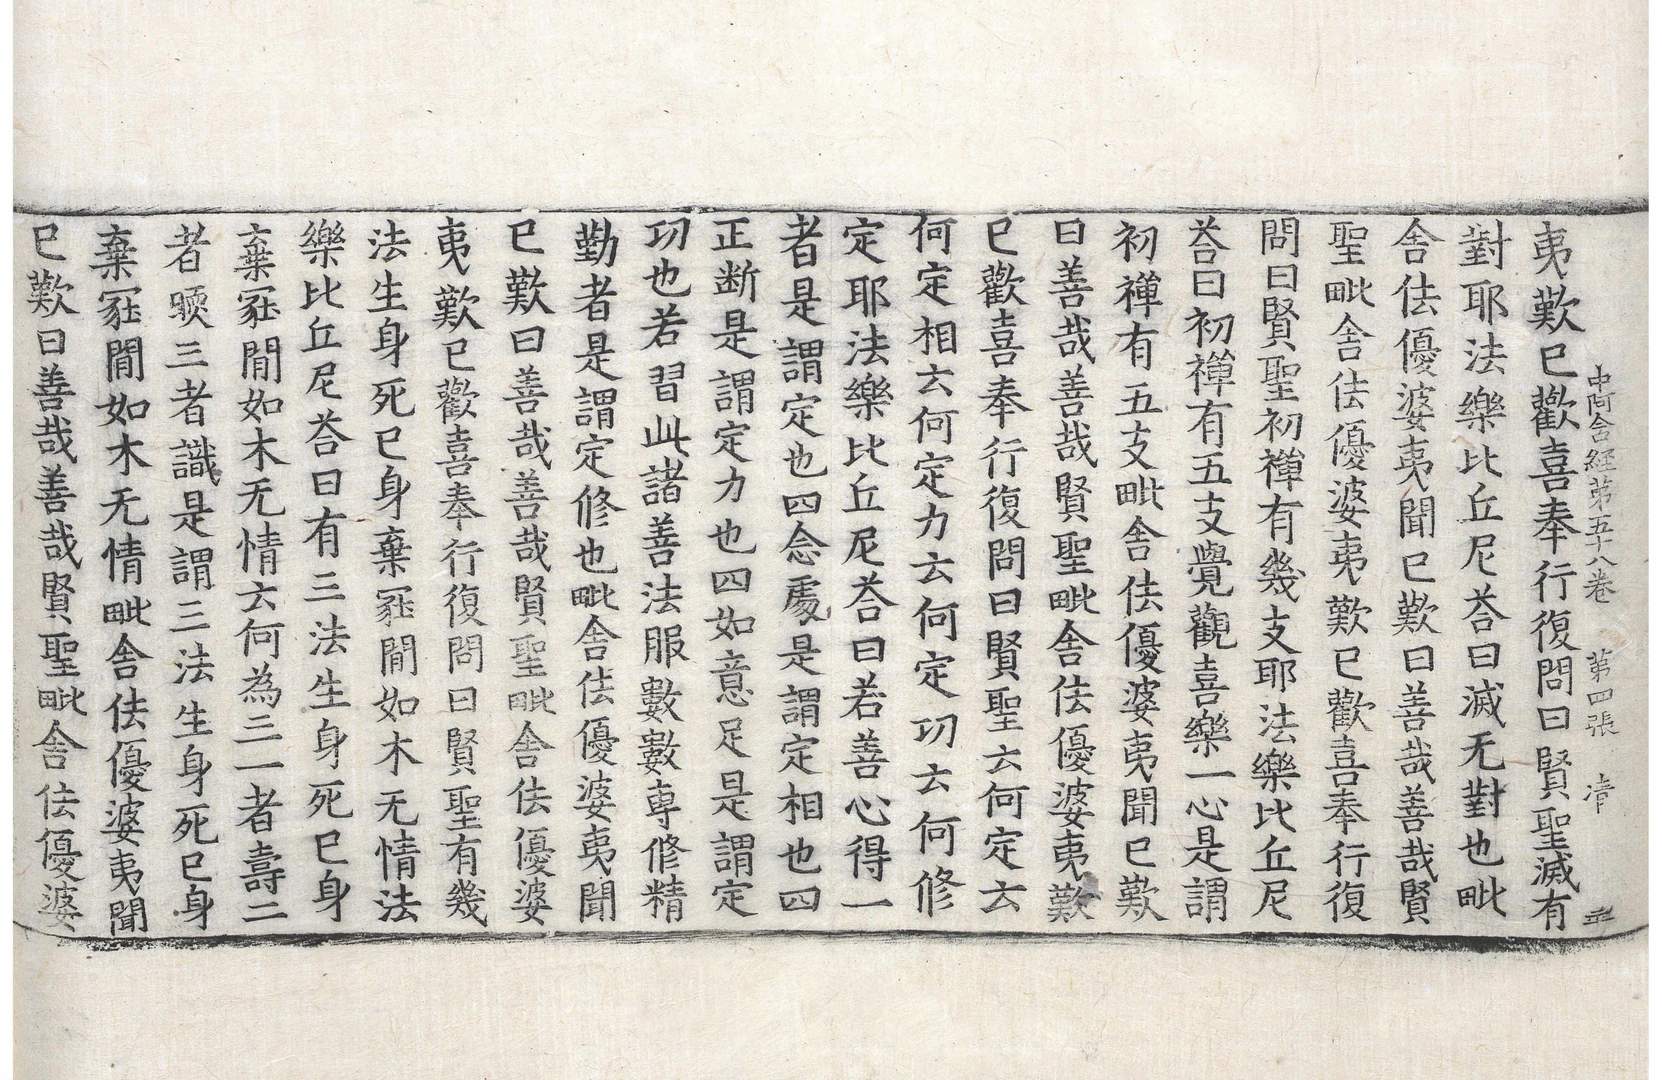 中阿含經第五十八卷　第四張　清
夷歎已歡喜奉行復問曰賢聖滅有
對耶法樂比丘尼荅曰滅无對也毗
舍佉優婆夷聞已歎曰善哉善哉賢
聖毗舍佉優婆夷歎已歡喜奉行復
問曰賢聖初禪有幾支耶法樂比丘尼
荅曰初禪有五支覺觀喜樂一心是謂
初禪有五支毗舍佉優婆夷聞已歎
曰善哉善哉賢聖毗舍佉優婆夷歎
已歡喜奉行復問曰賢聖云何定云
何定相云何定力云何定功云何修
定耶法樂比丘尼荅曰若善心得一
者是謂定也四念處是謂定相也四
正断是謂定力也四如意足是謂定
功也若習此諸善法服數數専修精
勤者是謂定修也毗舍佉優婆夷聞
已歎曰善哉善哉賢聖毗舍佉優婆
夷歎已歡喜奉行復問曰賢聖有幾
法生身死已身棄冢閒如木无情法
樂比丘尼荅曰有三法生身死已身
棄冢閒如木无情云何為三一者壽二
者暖三者識是謂三法生身死已身
棄冢閒如木无情毗舍佉優婆夷聞
已歎曰善哉善哉賢聖毗舍佉優婆